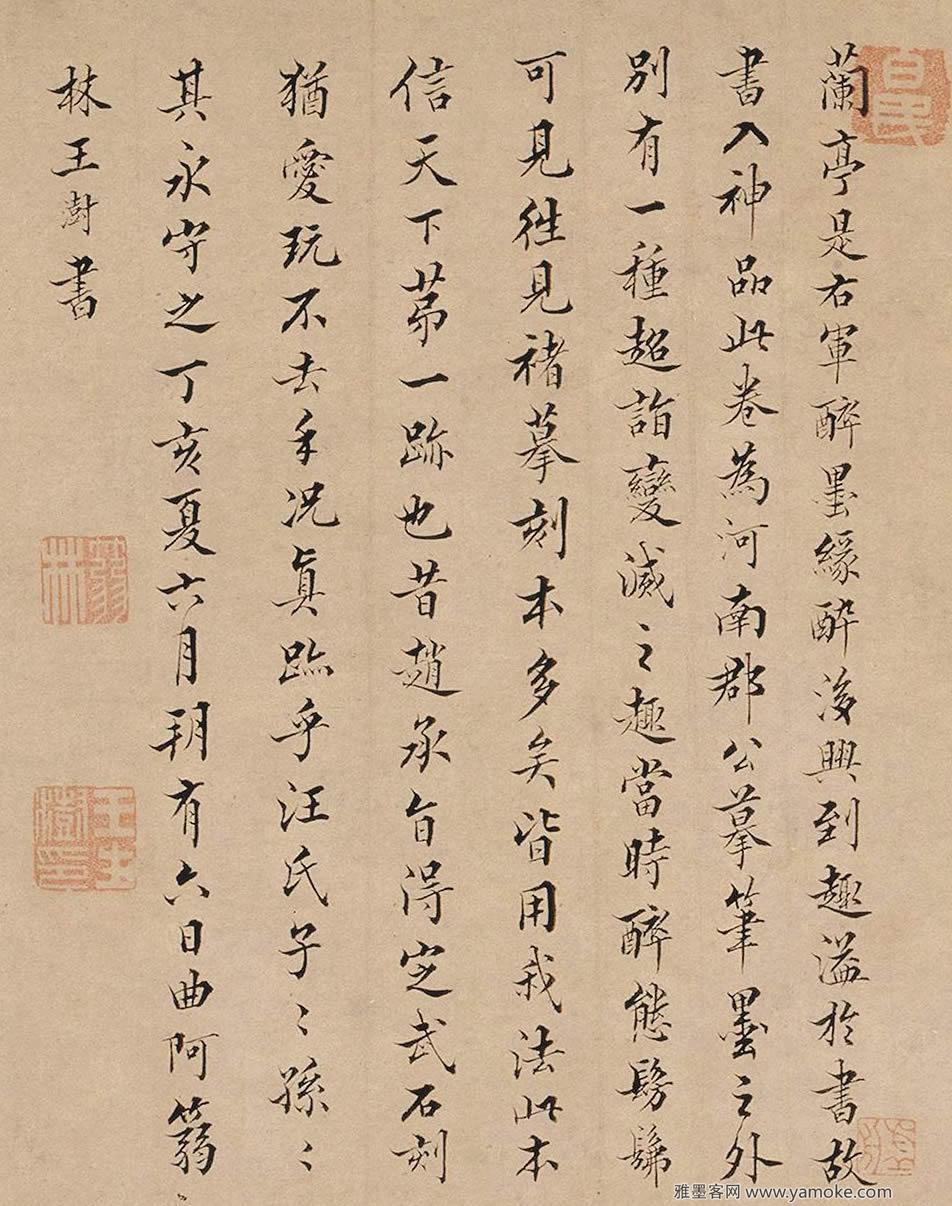 蘭亭是右軍醉墨緣酔後興到趣溢於書故
書入神品此卷為河南郡公摹筆墨之外
別有一種超詣變滅之趣當時醉態髣髴
可見往見褚摹刻本多矣皆用我法此本
信天下苐一跡也昔趙承旨得定武石刻
猶愛玩不去手况真跡乎汪氏子〻孫〻
其永守之丁亥夏六月朔有六日曲阿篛
林王澍書
雅墨客网 www.yamoke.com